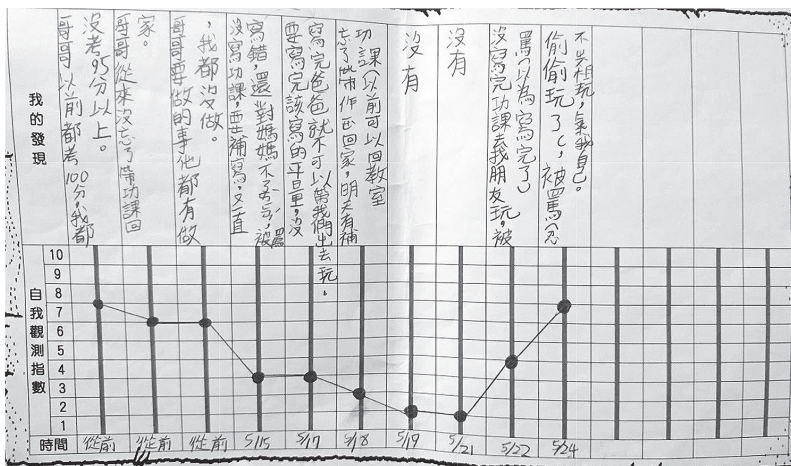 我的發現
哥哥以前都考100分,我都
沒考95分以上。
哥哥從來沒忘了帶功課回
家。
哥哥要做的事他都有做
,我都沒做。
沒寫功課,要補寫,又直
寫錯,還對媽媽不 被罵
要寫完該寫的平量,沒
寫完爸爸就不可以帶我們出去玩。
忘了帶作 回家,明天有補
功課(以前可以回教室
沒有
沒有
沒寫完功課去找朋友玩,被
罵(以為寫完了)
偷偷玩了(,被罵(忍
不 想玩,氣我自己。
自我觀測指數
10
9
8
7
6
5
4
3
2
1
時間 從前 從前 從前 5/15 5/17 5/18 5/19 5/21 5/22 5/24